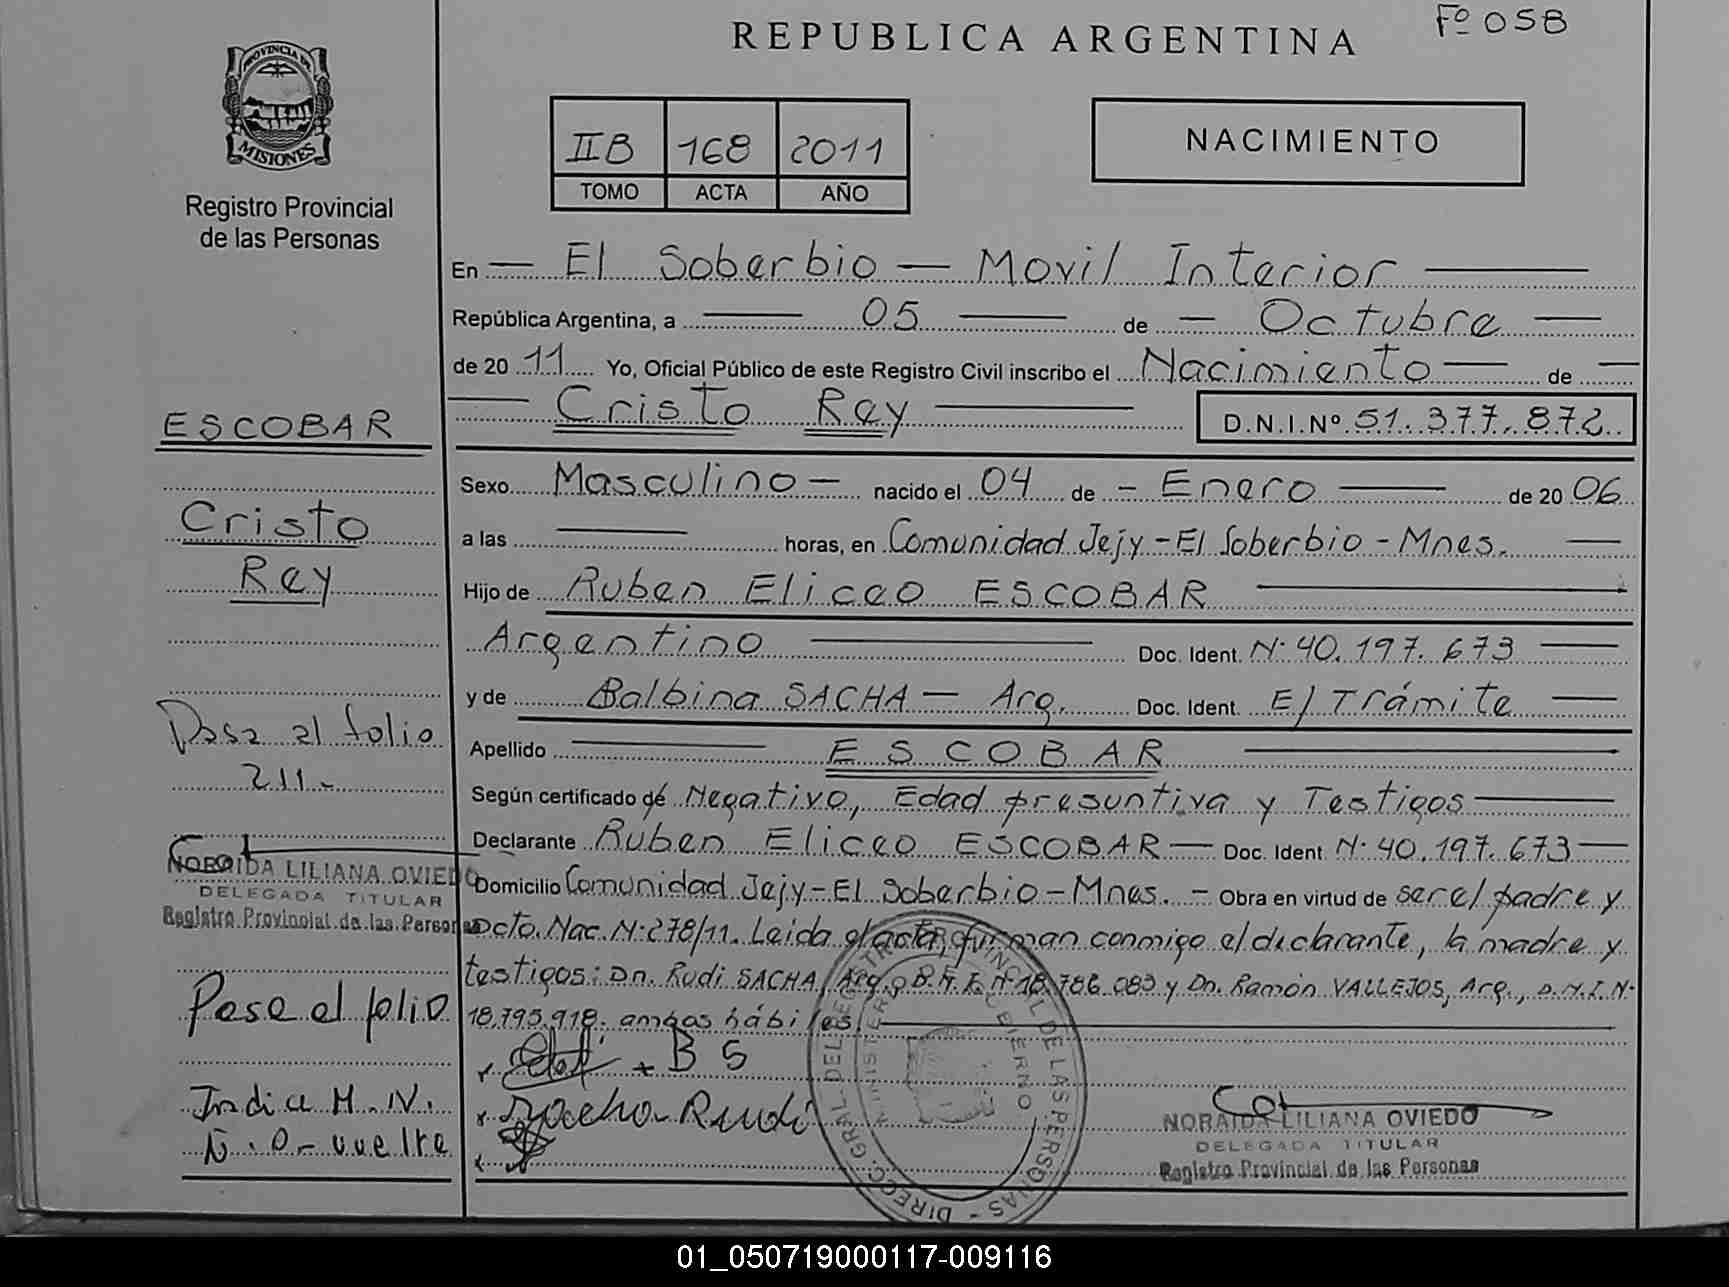 REPUBLICA ARGENTINA
Fº 058
PROVINCIA DE
MISIONES
Registro Provincial
de las Personas
IIB 168 2011
TOMO ACTA AÑO
NACIMIENTO
En — El Soberbio — Movil Interior —
República Argentina, a — 05 — de — Octubre —
de 20 11 Yo, Oficial Público de este Registro Civil inscribo el Nacimiento — de —
— Cristo Rey — D.N.I.Nº 51.377.872
Sexo Masculino — nacido el 04 de - Enero — de 20 06
a las — horas, en Comunidad Jejy - El Soberbio - Mnes. —
Hijo de Ruben Eliceo ESCOBAR —
Argentino — Doc. Ident. Nº 40.197.673 —
y de Balbina SACHA — Arg. Doc. Ident. E/Trámite —
Apellido — ESCOBAR —
Según certificado de Negativo, Edad presuntiva y Testigos —
Declarante Ruben Eliceo ESCOBAR — Doc. Ident Nº 40.197.673 —
Domicilio Comunidad Jejy - El Soberbio - Mnes. - Obra en virtud de ser el padre y
Dcto. Nac. Nº 278/11. Leida el acta, firman conmigo el declarante, la madre y
testigos: Dn. Rudi SACHA, Arg., D.N.I. Nº 18.786.083 y Dn. Ramón VALLEJOS, Arg., D.N.I. Nº
18.795.918. ambos hábiles. —
+ B S
Sacha Rudi
NORAIDA LILIANA OVIEDO
DELEGADA TITULAR
Registro Provincial de las Personas
DIRECC. GRAL. DEL REGISTRO PROVINCIAL DE LAS PERSONAS
MINISTERIO DE GOBIERNO
ESCOBAR
Cristo
Rey
Pasa al folio
211.-
NORAIDA LILIANA OVIEDO
DELEGADA TITULAR
Registro Provincial de las Personas
Pasa al folio
Indice M.N.
Ñ.O- vuelta
01_050719000117-009116